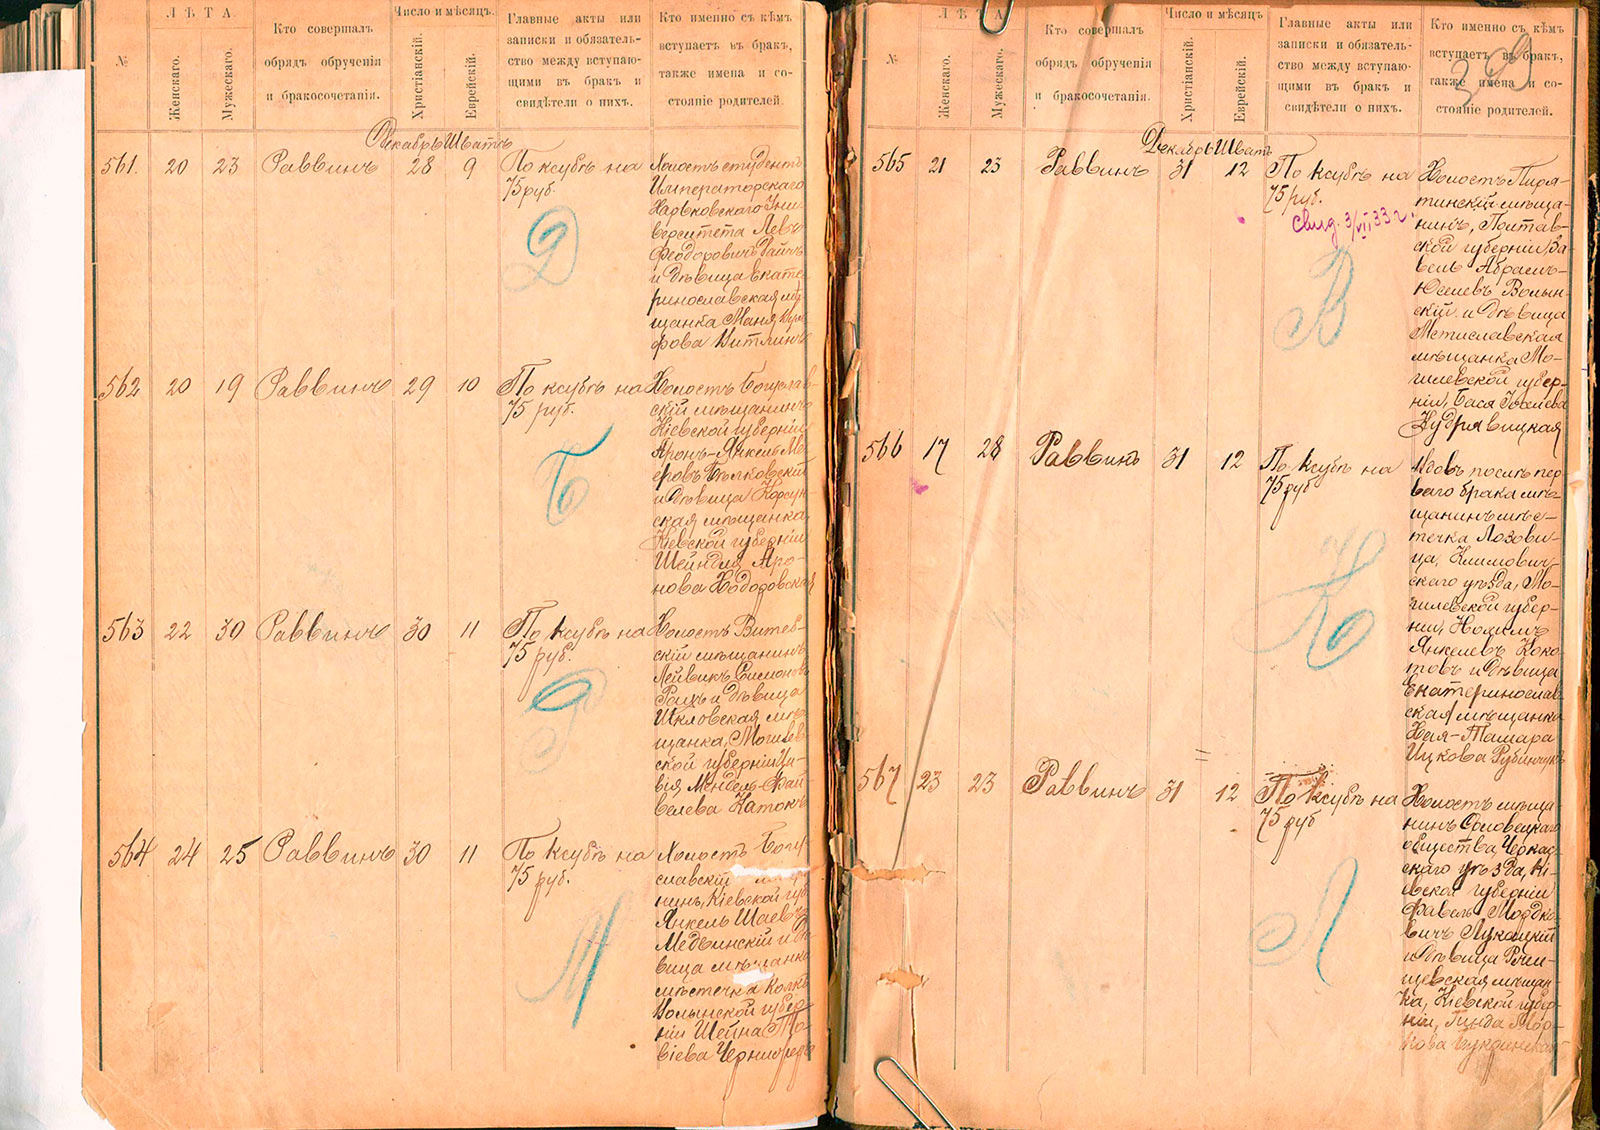 №
ЛѢТА.
Женскаго.
Мужескаго.
Кто совершалъ
обрядъ обрученія
и бракосочетанія.
Число и мѣсяцъ.
Христіанскій.
Еврейскій.
Главные акты или
записки и обязатель-
ство между вступаю-
щими въ бракъ и
свидѣтели о нихъ.
Кто именно съ кѣмъ
вступаетъ въ бракъ,
также имена и со-
стояніе родителей.
Декабрь Шватъ
561. 20 23 Раввинъ 28 9 По ксубѣ на
75 руб.
Холостъ студентъ
Императорскаго
Харьковскаго Уни
верситета Левъ
Феодоровичъ
и дѣвица Екате
ринославская мѣ
щанка Маня
Витлинъ
Д
562 20 19 Раввинъ 29 10 По ксубѣ на
75 руб.
Холостъ Богуслав-
скій мѣщанинъ
Кіевской губерніи
Аронъ-Янкель Ме
еровъ Бѣлковскій
и дѣвица Корсун
ская мѣщанка
Кіевской губерніи
Шейндля Аро-
нова Ходоровская
Б
563 22 30 Раввинъ 30 11 По ксубѣ на
75 руб.
Холостъ Витеб-
скій мѣщанинъ
Лейвикъ Симоновъ
и дѣвица
Шкловская мѣ
щанка, Могилев
ской губерніи Ци-
вія Мендель-Фай-
велева Катокъ
Р
564 24 25 Раввинъ 30 11 По ксубѣ на
75 руб.
Холостъ Богу
славскій
нинъ, Кіевской губ
Янкель Шаевъ
Медвинскій и дѣ
вица мѣщанка
мѣстечка Колкъ
Волынской губер
ніи Шейна То-
віева
М
№
ЛѢТА
Женскаго.
Мужескаго.
Кто совершалъ
обрядъ обрученія
и бракосочетанія.
Число и мѣсяцъ
Христіанскій.
Еврейскій.
Главные акты или
записки и обязатель-
ство между вступаю-
щими въ бракъ и
свидѣтели о нихъ.
Кто именно съ кѣмъ
вступаетъ въ бракъ,
также имена и со-
стояніе родителей.
Декабрь Шватъ
565 21 23 Раввинъ 31 12 По ксубѣ на
75 руб.
Холостъ Пиря-
тинскій мѣща-
нинъ, Полтав-
ской губерніи За
вель Абрамъ-
Юселевъ Волын-
скій и дѣвица
Мстиславская
мѣщанка Мо-
гилевской губер-
ніи, Бася Іоселева
Кудрявицкая
В
566 17 28 Раввинъ 31 12 По ксубѣ на
75 руб
Вдовъ послѣ пер
ваго брака мѣ
щанинъ мѣс-
течка Лозови-
ца, Климович-
скаго уѣзда, Мо-
гилевской губер-
ніи,
Янкелевъ Коко
товъ и дѣвица
Екатеринослав-
ская мѣщанка
Хая-Тамара
Ицкова Рубинчикъ
К
567 23 23 Раввинъ 31 12 По ксубѣ на
75 руб
Холостъ мѣща-
нинъ Орловецкаго
общества, Черкас-
скаго уѣзда, Кі-
евской губерніи
Файвель Мордко-
вичъ Лукацкій
и дѣвица Ржи-
щевская мѣщан-
ка, Кіевской губер-
ніи, Гинда Мор-
кова
Л